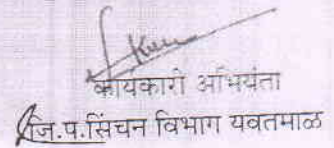 कार्यकारी अभियंता
जि.प.सिंचन विभाग यवतमाळ